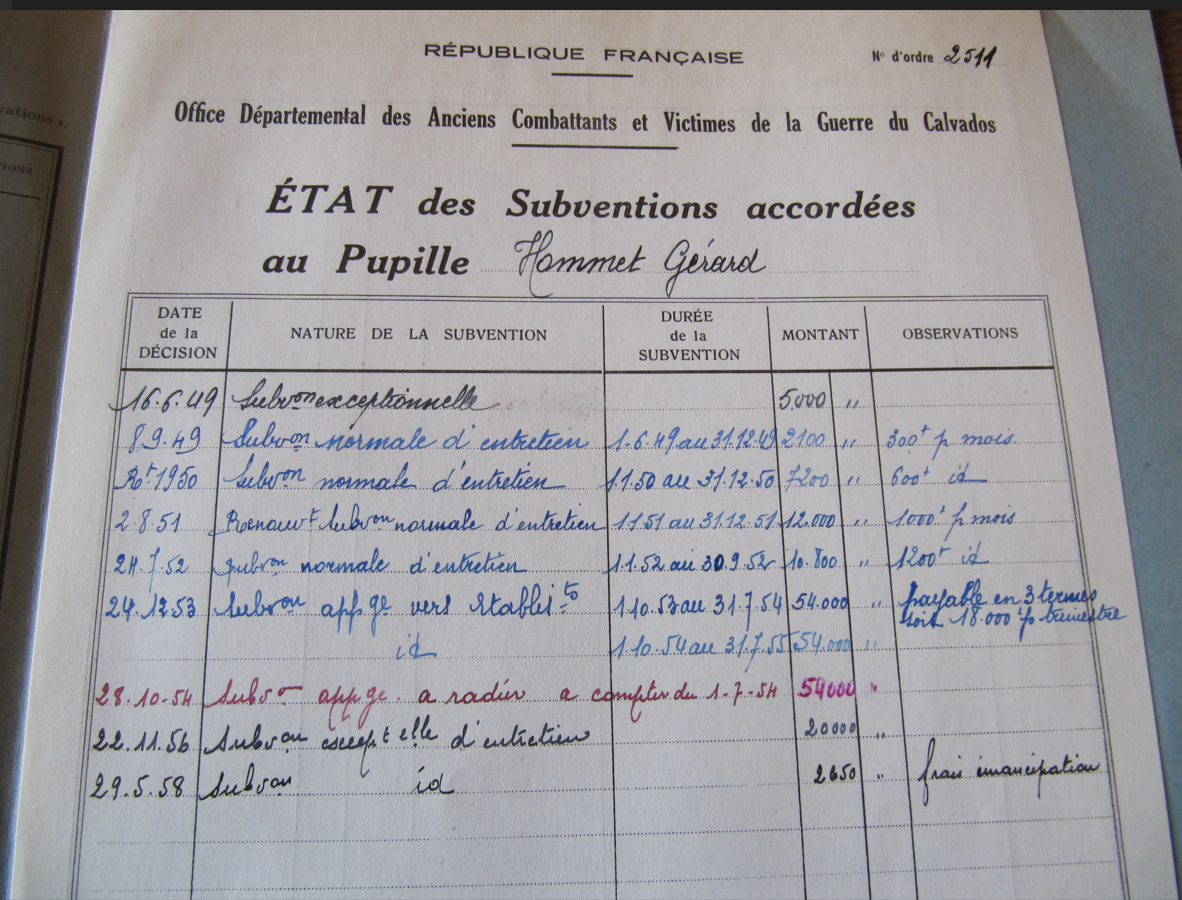 vations ».
IONS
RÉPUBLIQUE FRANÇAISE
N° d'ordre 2511
Office Départemental des Anciens Combattants et Victimes de la Guerre du Calvados
ÉTAT des Subventions accordées
au Pupille Hommet Gérard
DATE de la DÉCISION NATURE DE LA SUBVENTION DURÉE de la SUBVENTION MONTANT OBSERVATIONS
16.6.49 Subvon exceptionnelle 5.000 "
8.9.49 Subvon normale d'entretien 1.6.49 au 31.12.49 2100 " 300f p mois
Rt 1950 Subvon normale d'entretien 1.1.50 au 31.12.50 7200 " 600f id
2.8.51 Renouvt Subvon normale d'entretien 1.1.51 au 31.12.51 12.000 " 1000f p mois
24.7.52 Subvon normale d'entretien 1.1.52 au 30.9.52 10.800 " 1200f id
24.12.53 Subvon appge vers Etablists 1.10.53 au 31.7.54 54.000 " payable en 3 termes
soit 18.000 f p trimestre
id 1.10.54 au 31.7.55 54.000 "
28.10.54 Subvon appge. a radier a compter du 1-7-54 54000 "
22.11.56 Subvon exceptelle d'entretien 20000 "
29.5.58 Subvon id 2650 " frais émancipation